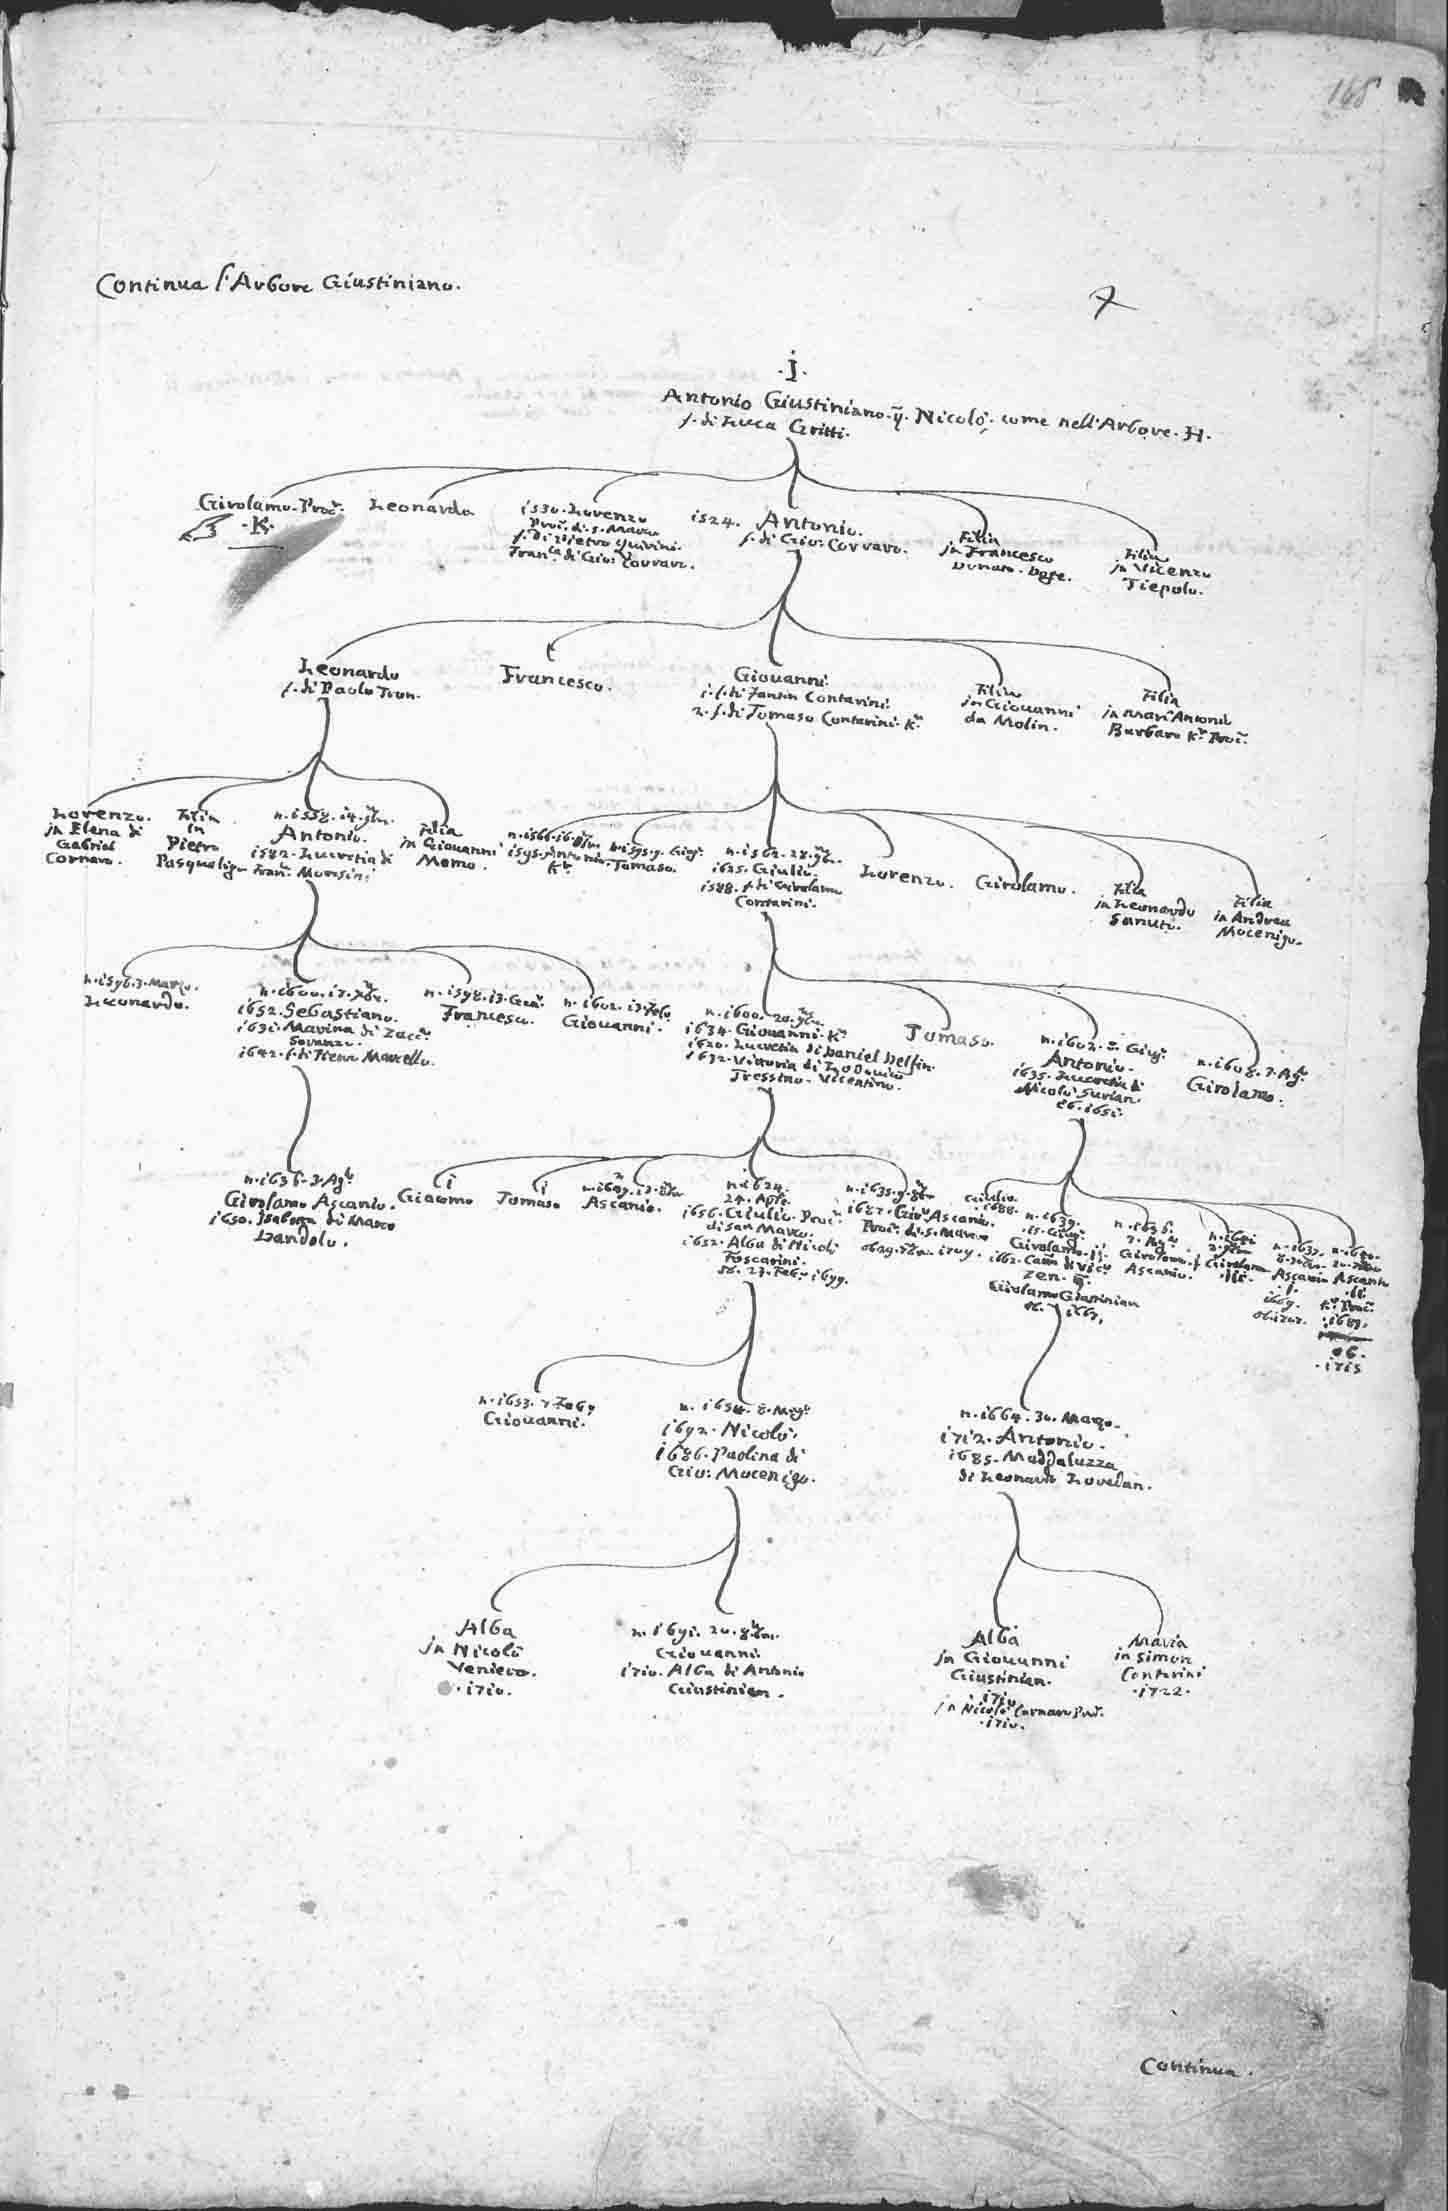 168
Continua l'Arbore Giustiniano.
7
.I.
Antonio Giustiniano. q. Nicolò, come nell'Arbore. H.
f. di Luca Gritti.
Girolamo. Proc.r
.K.
Leonardo
1530. Lorenzo
Proc.r di. S. Marco
f. di Pietro Quirini.
Fran.ca di Gio: Corraro.
1524. Antonio.
f. di Gio: Corraro.
Filia
in Francesco
Donato. Doge.
Filia
in Vicenzo
Tiepolo.
Leonardo
f. di Paolo Tron.
Francesco.
Giovanni.
1. f. di Fantin Contarini.
2. f. di Tomaso Contarini. K.r
Filia
in Giovanni
da Molin.
Filia
in Marc'Antonio
Barbaro K.r Proc.r
Lorenzo.
in Elena di
Gabriel
Cornaro.
Filia
in
Pietro
Pasqualigo
n. 1558. 14. 9bre.
Antonio.
1582. Lucretia di
Fran.co Morosini
Filia
in Giovanni
Memo.
1595. Antonio.
K.r
n. 1595. 9. Giug.
Tomaso.
n. 1562. 28. 9bre.
1625. Giulio.
1588. f. di Girolamo
Contarini.
Lorenzo.
Girolamo.
Filia
in Leonardo
Sanuto.
Filia
in Andrea
Mocenigo.
n. 1596. 3. Marzo.
Leonardo.
n. 1600. 17. Xbre.
1652. Sebastiano.
1631. Marina di Zacc.a
Soranzo.
1642. f. di Piero Marcello.
n. 1598. 13. Gen.
Francesco.
n. 1602. 13 Feb.o
Giovanni.
n. 1600. 20. 9bre.
1634. Giovanni. K.r
1620. Lucretia di Daniel Delfin.
1632. Vittoria di Lodovico
Tressino. Vicentino.
Tomaso.
n. 1602. 2. Giug.
Antonio.
1635. Lucretia di
Nicolò Surian.
ob. 1651.
n. 1608. 7. Ag.
Girolamo.
n. 1636. 3. Ag.
Girolamo Ascanio.
1650. Isabetta di Marco
Dandolo.
Giacomo
Tomaso
Ascanio.
n. 1624.
24. Aple.
1656. Giulio. Proc.r
di San Marco.
1652. Alba di Nicolò
Foscarini.
ob. 27. Feb.o 1699.
n. 1635. 9. 8bre
1687. Gio: Ascanio.
Proc.r di. S. Marco
Giulio.
1688.
n. 1639.
15. Giug.
Girolamo. II.
Zen. q.
Girolamo Giustinian
ob. 1667.
n. 1636.
7. Ag.
Girolamo.
Ascanio.
n. 1641
Girolamo
.III.
n. 1637.
Ascanio
.I.
1669.
n. 1640.
Ascanio
.II.
K.r Proc.r
.1689.
ob.
.1715
n. 1653. 7 Feb.o
Giovanni.
n. 1654. 8. Mag.
1692. Nicolò.
1686. Paolina di
Gio: Mocenigo.
n. 1664. 30. Marzo.
1712. Antonio.
1685. Maddaluzza
di Leonardo Loredan.
Alba
in Nicolò
Veniero.
.1710.
n. 1691. 20. 8bre.
Giovanni.
1710. Alba di Antonio
Giustinian.
Alba
in Giovanni
Giustinian.
.1710
in Nicolò Cornaro Proc.r
.1710.
Maria
in Simon
Contarini
.1722.
Continua.